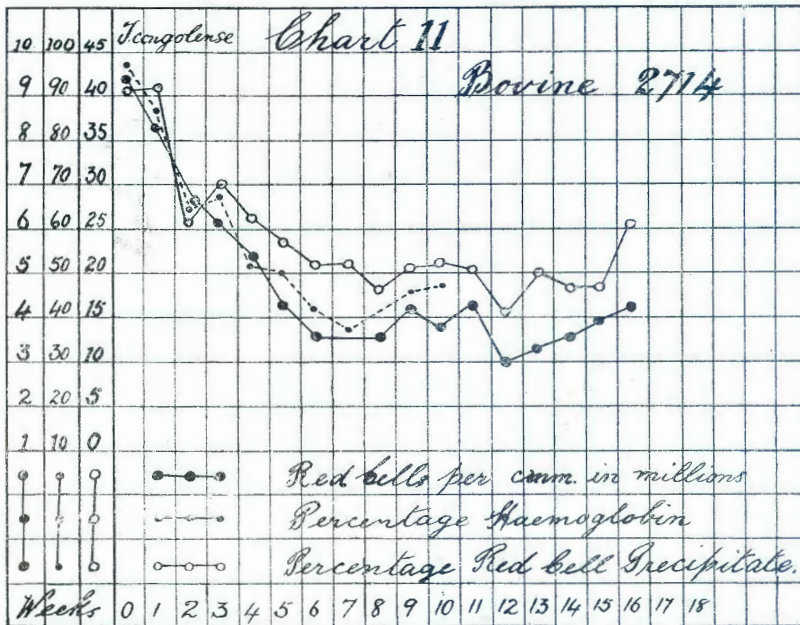 T. congolense Chart 11
Bovine 2714
10 100 45
9 90 40
8 80 35
7 70 30
6 60 25
5 50 20
4 40 15
3 30 10
2 20 5
1 10 0
Red Cells per cmm. in millions
Percentage Haemoglobin
Percentage Red Cell Precipitate.
Weeks 0 1 2 3 4 5 6 7 8 9 10 11 12 13 14 15 16 17 18